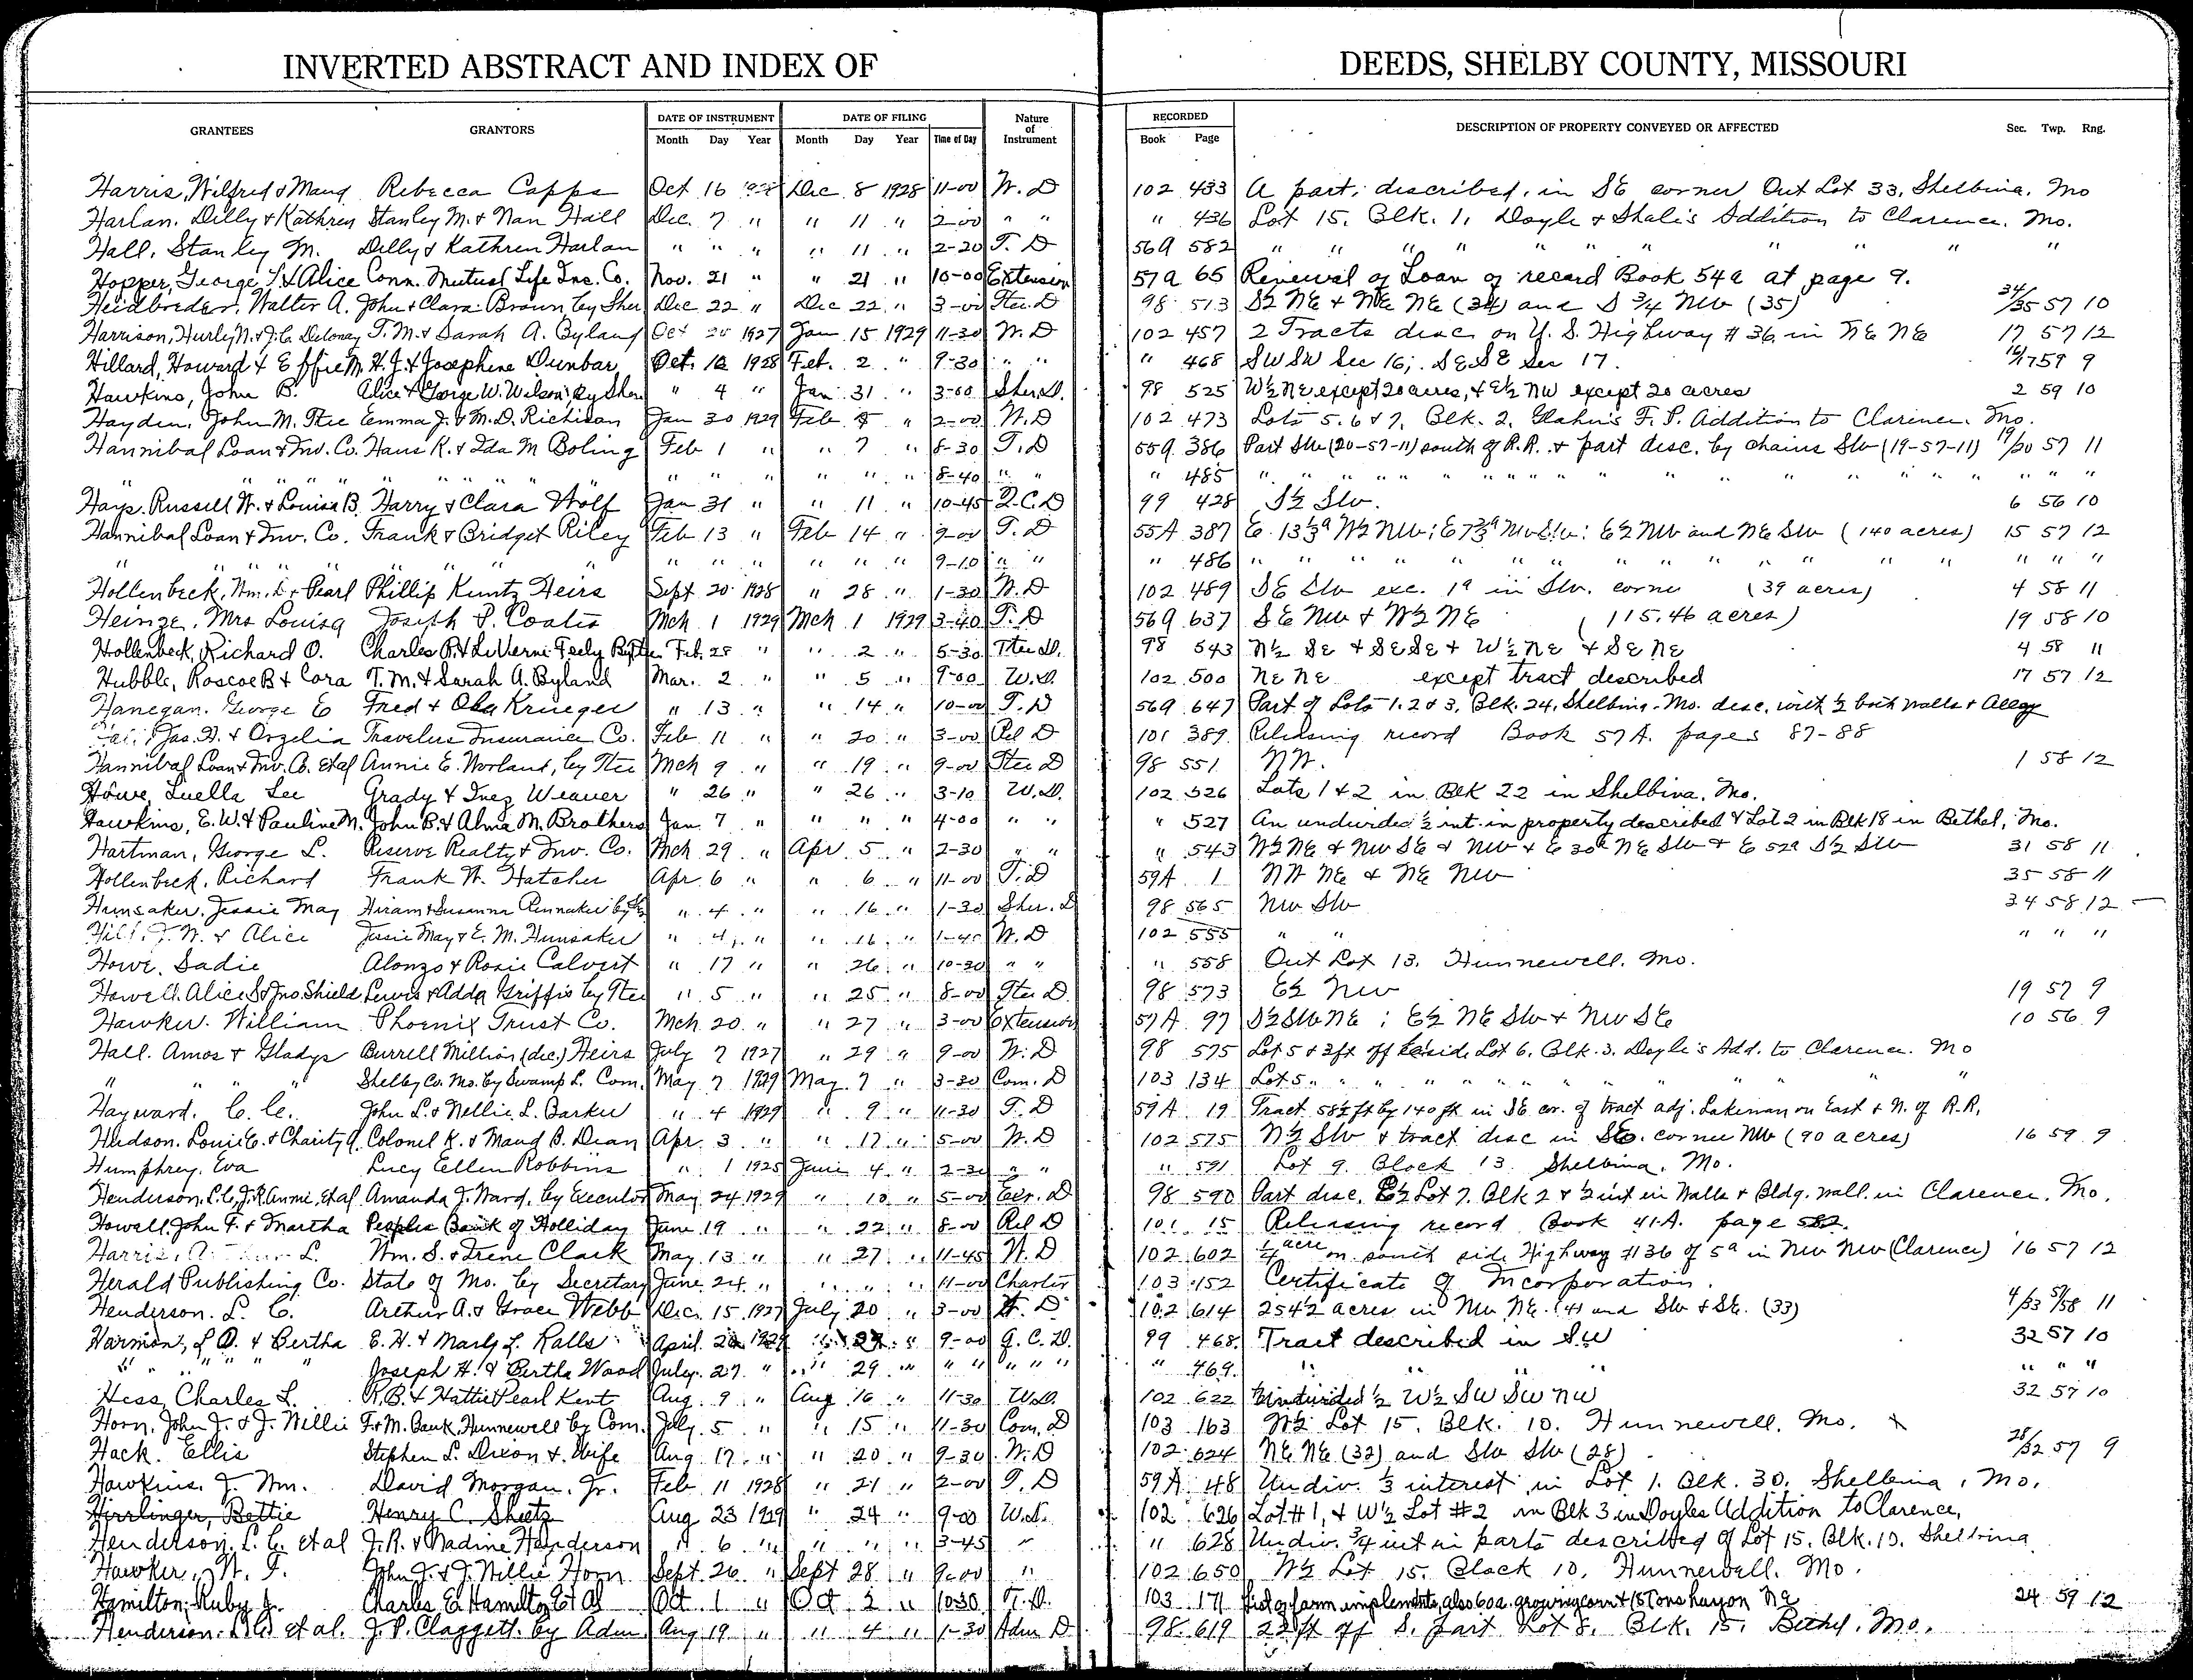 INVERTED ABSTRACT AND INDEX OF DEEDS, SHELBY COUNTY, MISSOURI
GRANTEES GRANTORS DATE OF INSTRUMENT DATE OF FILING Nature of Instrument RECORDED DESCRIPTION OF PROPERTY CONVEYED OR AFFECTED Sec. Twp. Rng.
Month Day Year Month Day Year Time of Day Book Page
Harris, Wilfred & Maud Rebecca Capps Oct 16 1928 Dec 8 1928 11-00 W. D 102 433 A part, described, in SE corner Out Lot 33, Shelbina, Mo
Harlan, Dilly & Kathren Stanley M. & Nan Hall Dec. 7 " " 11 " 2-00 " " " 436 Lot 15. Blk. 1, Doyle & Shale's Addition to Clarence, Mo.
Hall, Stanley M. Dilly & Kathren Harlan " " " " 11 " 2-20 T. D 56A 582 " " " " " " " " " " "
Hopper, George T. & Alice Conn. Mutual Life Ins. Co. Nov. 21 " " 21 " 10-00 Extension 57A 65 Renewal of Loan of record Book 54A at page 9.
Heidbreder, Walter A. John & Clara Brown by Sher Dec 22 " Dec 22 " 3-00 Stee. D 98 513 S½ NE & NE NE (34) and S ¾ NW (35) 34/35 57 10
Harrison, Hurley N. & J.C. Deloney T. M. & Sarah A. Byland Oct 20 1927 Jan 15 1929 11-30 W. D 102 457 2 Tracts desc on U. S. Highway # 36 in NE NE 17 57 12
Hillard, Howard & Effie M. H. J. & Josephine Dunbar Oct. 12 1928 Feb. 2 " 9-30 " " " 468 SW SW Sec 16; SE SE Sec 17. 16/17 59 9
Hawkins, John B. Alice & George W. Wilson by Sher " 4 " Jan 31 " 3-00 Sher. D. 98 525 W½ NE except 20 acres, & E½ NW except 20 acres 2 59 10
Hayden, John M. Stee Emma J. & M. D. Richison Jan 30 1929 Feb 5 " 2-00 W. D 102 473 Lots 5. 6 & 7, Blk. 2, Glahn's F. P. Addition to Clarence, Mo.
Hannibal Loan & Inv. Co. Hans K. & Ida M Boling Feb 1 " " 7 " 8-30 T. D 55A 386 Part SW (20-57-11) south of R.R. & part desc. by chains SW (19-57-11) 19/20 57 11
" " " " " " " " " " " " " " 8-40 " " " 485 " " " " " " " " " " " " " " " "
Hays, Russell W. & Louisa B. Harry & Clara Wolf Jan 31 " " 11 " 10-45 Q.C.D 99 428 S½ SW. 6 56 10
Hannibal Loan & Inv. Co. Frank & Bridget Riley Feb 13 " Feb 14 " 9-00 T. D 55A 387 E. 13⅓a W½ NW; E 7⅔a NW SW; E½ NW and NE SW (140 acres) 15 57 12
" " " " " " " " " " " " " 9-10 " " " 486 " " " " " " " " " " " " " "
Hollenbeck, Wm. L & Pearl Phillip Kuntz Heirs Sept 20 1928 " 28 " 1-30 W. D 102 489 SE SW exc. 1a in SW. corner (39 acres) 4 58 11
Heinze, Mrs Louisa Joseph P. Coates Mch 1 1929 Mch 1 1929 3-40 T. D 56A 637 SE NW & W½ NE (115.46 acres) 19 58 10
Hollenbeck, Richard O. Charles P. & LaVerni Feely By Stee Feb. 28 " " 2 " 5-30 Stee D. 98 543 N½ SE & SE SE & W½ NE & SE NE 4 58 11
Hubble, Roscoe B & Cora T. M. & Sarah A. Byland Mar. 2 " " 5 " 9-00 W. D. 102 500 NE NE except tract described 17 57 12
Hanegan, George E Fred & Ola Krueger " 13 " " 14 " 10-00 T. D 56A 647 Part of Lots 1. 2 & 3, Blk. 24, Shelbina, Mo. desc. with ½ both walls & Alley
Jas. H. & Orzelia Travelers Insurance Co. Feb 11 " " 20 " 3-00 Rel D 101 389 Releasing record Book 57A. pages 87-88
Hannibal Loan & Inv. Co. et al Annie E. Worland, by Stee Mch 9 " " 19 " 9-00 Stee D 98 551 NW. 1 58 12
Howe, Luella Lee Grady & Inez Weaver " 26 " " 26 " 3-10 W. D. 102 526 Lots 1 & 2 in Blk 22 in Shelbina, Mo.
Hawkins, E. W. & Pauline M. John B. & Alma M. Brothers Jan. 7 " " " " 4-00 " " " 527 An undivided ½ int. in property described & Lot 2 in Blk 18 in Bethel, Mo.
Hartman, George L. Reserve Realty & Inv. Co. Mch 29 " Apr 5 " 2-30 " " " 543 W½ NE & NW SE & NW & E 30a NE SW & E 52a S½ SW 31 58 11
Hollenbeck, Richard Frank W. Hatcher Apr 6 " " 6 " 11-00 T. D 59A 1 NW NE & NE NW 35 58 11
Hunsaker, Jessie May Hiram & Susanna Pennaker by " 4 " " 16 " 1-30 Sher. D 98 565 NW SW 34 58 12
Hill, J. W. & Alice Jessie May & E. M. Hunsaker " 4 " " 16 " 1-40 W. D 102 555 " " " " "
Howe, Sadie Alonzo & Rosie Calvert " 17 " " 26 " 10-30 " " " 558 Out Lot 13, Hunnewell, Mo.
Howell, Alice S & Jno. Shield Lewis & Adda Griffis by Stee " 5 " " 25 " 8-00 Stee D 98 573 E½ NW 19 57 9
Hawker, William Phoenix Trust Co. Mch 20 " " 27 " 3-00 Extension 57A 97 S½ SW NE; E½ NE SW & NW SE 10 56 9
Hall, Amos & Gladys Burrell Million (dec.) Heirs July 7 1927 " 29 " 9-00 W. D 98 575 Lot 5 & 3ft off side Lot 6, Blk. 3, Doyle's Add. to Clarence. Mo
" " " Shelby Co. Mo. by Swamp L. Com. May 7 1929 May 7 " 3-30 Com. D 103 134 Lot 5 " " " " " " " " " "
Hayward, C. C. John L. & Nellie L. Barker " 4 1929 " 9 " 11-30 T. D 59A 19 Tract 58½ ft by 140 ft in SE cor. of tract adj. Lakenan on East & N. of R.R.
Hudson, Loui E. & Charity A. Colonel K. & Maud B. Dean Apr. 3 " " 17 " 5-00 W. D 102 575 N½ SW & tract desc in SE. corner NW (90 acres) 16 59 9
Humphrey, Eva Lucy Ellen Robbins " 1 1925 June 4 " 2-30 " " " 591 Lot 9. Block 13. Shelbina, Mo.
Henderson, L.C., J.R. Annie, et al Amanda J. Ward, by Executor May 24 1929 " 10 " 5-00 Exr. D 98 590 Part desc. E½ Lot 7. Blk 2 & ½ int in Walls & Bldg. wall in Clarence, Mo.
Howell, John F. & Martha Peoples Bank of Holliday June 19 " " 22 " 8-00 Rel D 101 15 Releasing record Book 41-A. page 582.
Harris, L. Wm. S. & Irene Clark May 13 " " 27 " 11-45 W. D 102 602 ¼ acre on south side Highway #36 of 5a in NW NW (Clarence) 16 57 12
Herald Publishing Co. State of Mo. by Secretary June 24 " " " " 11-00 Charter 103 152 Certificate of Incorporation.
Henderson, L. C. Arthur A. & Grace Webb Dec. 15 1927 July 20 " 3-00 W. D 102 614 254½ acres in NW NE. (4) and SW & SE. (33) 4/33 57/58 11
Harmon, L. O. & Bertha E. H. & Marly L. Ralls April 20 1929 " 27 " 9-00 Q. C. D. 99 468 Tract described in SW 32 57 10
" " " " Joseph H. & Bertha Wood July 27 " " 29 " " " " " " " 469 " " " " " " "
Hess, Charles L. R.B. & Hattie Pearl Kent Aug. 9 " Aug 16 " 11-30 W. D. 102 622 Undivided ½ W½ SW SW NW 32 57 10
Horn, John J. & J. Willie F. & M. Bank, Hunnewell by Com. July 5 " " 15 " 11-30 Com. D 103 163 W½ Lot 15. Blk. 10. Hunnewell. Mo.
Hack, Ellis Stephen L. Dixon & Wife Aug 17 " " 20 " 9-30 W. D 102 624 NE NE (32) and SW SW (28) 28/32 57 9
Hawkins, J. Wm. David Morgan, Jr. Feb 11 1928 " 21 " 2-00 T. D 59A 48 Undiv. ⅓ interest in Lot 1. Blk. 30. Shelbina, Mo.
Hirrlinger, Bettie Henry C. Sheetz Aug 23 1929 " 24 " 9-00 W. D. 102 626 Lot #1, & W½ Lot #2 in Blk 3 in Doyles Addition to Clarence,
Henderson, L. C. et al J. R. & Nadine Henderson " 6 " " " " 3-45 " " 628 Undiv. ¾ int in parts described of Lot 15, Blk. 10. Shelbina
Hawker, W. F. John J. & J. Willie Horn Sept. 26 " Sept 28 " 9-00 " 102 650 W½ Lot 15, Block 10, Hunnewell. Mo.
Hamilton, Ruby J. Charles E. Hamilton Et Al Oct. 1 " Oct 2 " 10-30 T. D. 103 171 List of farm implements, also 60 a. growing corn & 15 Tons hay on NE 24 59 12
Henderson, L.C. et al. J. P. Claggett. by Adm Aug 19 " " 4 " 1-30 Adm D 98 619 22 ft off S. part Lot 8, Blk. 15, Bethel, Mo.